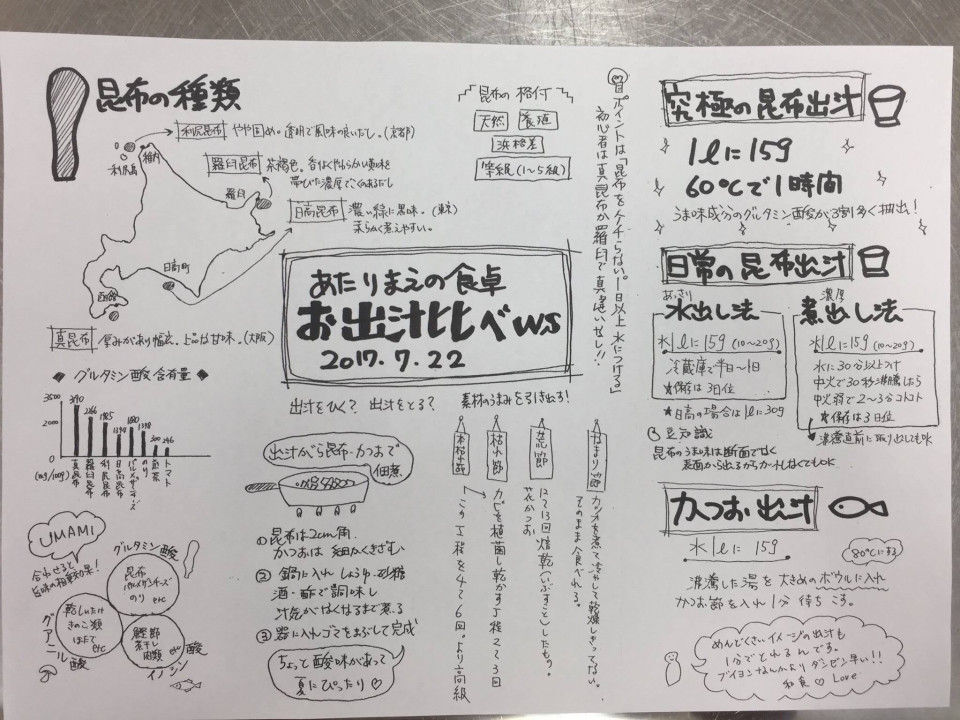 昆布の種類
利尻昆布 やや固め。透明で風味の良いだし。(京都)
利尻島
稚内
羅臼昆布 茶褐色。香りよくやわらかい
帯びた濃厚でこくのあるだし
羅臼
日高昆布 濃い緑に黒味。(東京)
柔らかく煮えやすい。
日高町
函館
真昆布 厚みがあり幅広。上品な甘味。(大阪)
昆布の格付
天然
養殖
浜格差
等級(1〜5級)
ポイントは「昆布をケチらない。一日以上水につける」
初心者は真昆布か羅臼で真違いなし!!
あたりまえの食卓
お出汁比べws
2017.7.22
グルタミン酸含有量
3500
2000
(mg/100g)
真昆布
羅臼昆布
利尻昆布
日高昆布
パルメザンチーズ
のり
煎茶
トマト
UMAMI
合わせると
旨味の相乗効果!
グルタミン酸
昆布
パルメザンチーズ
のり etc
グアニル酸
乾しいたけ
きのこ類
ほたて
etc
イノシン酸
鰹節
煮干し
肉類
etc
出汁をひく? 出汁をとる?
素材のうまみを引き出す!
出汁がら昆布・かつおで
佃煮
① 昆布は2cm角、
かつおは細かくきざむ
② 鍋に入れしょうゆ・砂糖
酒・酢で調味し
汁気がなくなるまで煮る
③ 器に入れゴマをまぶして完成
ちょっと酸味があって
夏にぴったり♡
なまり節 カツオを煮て冷やして乾燥しきってない。
そのまま食べれる。
荒節 12〜13回焙乾(いぶすこと)したもの。
花かつお
枯れ節 カビを植菌し乾かす工程2〜3回
本枯れ節 この工程を4〜6回。より高級
究極の昆布出汁
1ℓに15g
60℃で1時間
うま味成分のグルタミン酸が3割多く抽出!
日常の昆布出汁
あっさり
水出し法
水1ℓに15g(10〜20g)
冷蔵庫で半日〜1日
★保存は3日位
★日高の場合は1ℓに30g
濃厚
煮出し法
水1ℓに15g(10〜20g)
水に30分以上つけ
中火で30秒沸騰したら
中火弱で2〜3分コトコト
★保存は3日位
沸騰直前に取り出してもOK
豆知識
昆布のうま味は断面でなく
表面から出るからカットしなくてもOK
かつお出汁
水1ℓに15g
80℃にする
沸騰した湯を大きめのボウルに入れ
かつお節を入れ1分待ちこす。
めんどくさいイメージの出汁も
1分でとれるんです。
ブイヨンなんかよりダンゼン早い!!
和食♡Love